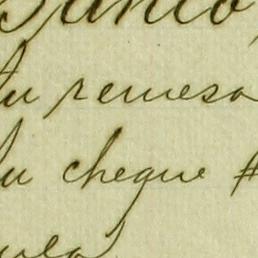 Banco,
tu remesa
tu cheque #